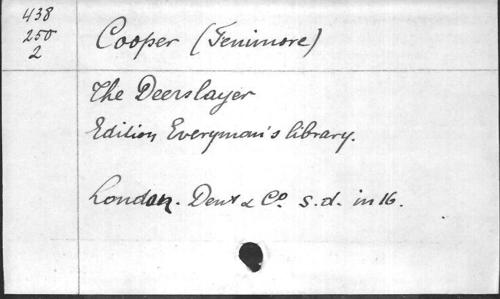 438
250
2
Cooper (Fenimore)
The Deerslayer
Edition Everyman's library.
London. Dent & Co. s.d. in 16.